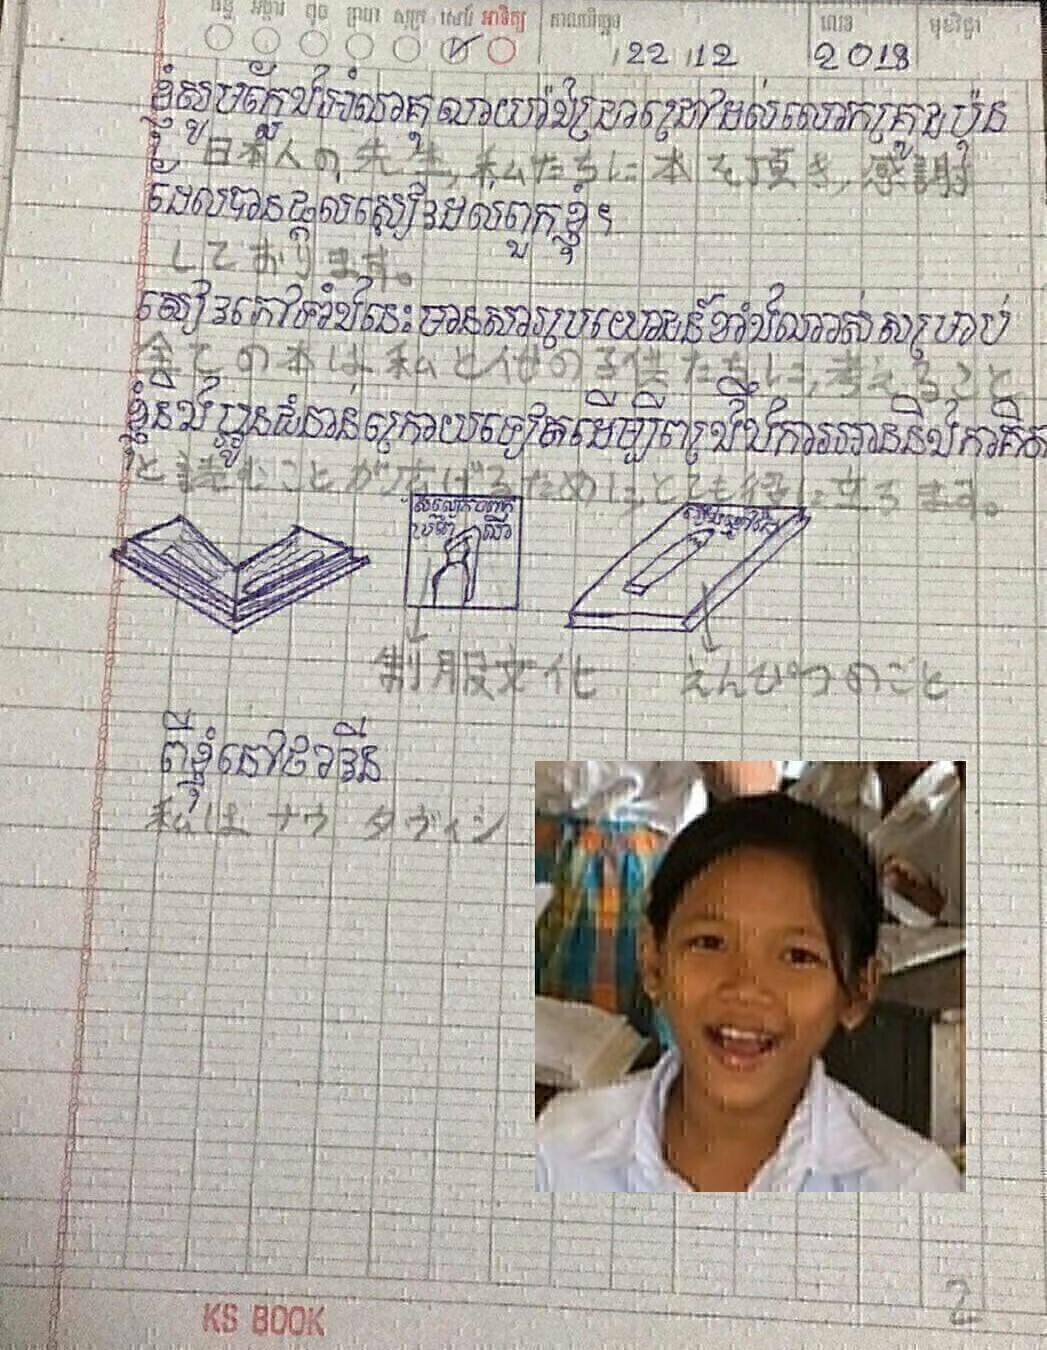 ចន្ទ អង្គារ ពុធ ព្រហ សុក្រ សៅរ៍ អាទិត្យ កាលបរិច្ឆេទ លេខ មុខវិជ្ជា
22 12 2018
ខ្ញុំសូមថ្លែងអំណរគុណយ៉ាងជ្រាលជ្រៅដល់លោកគ្រូជប៉ុន
日本人の先生,私たちに本を頂き,感謝
ដែលបានផ្តល់សៀវដល់ពួកខ្ញុំ។
しております。
សៀវភៅទាំងនេះមានសារប្រយោជន៍ទាំងណាស់សម្រាប់
全ての本は私と他の子供たちに,考えること
ខ្ញុំនិងប្អូនជំនាន់ក្រោយទៀតដើម្បីពង្រឹងការអាននិងការគិត
と読むことが広げるために,とても役に立ちます。
制服文化 えんぴつのごと
ពីខ្ញុំនៅថាវីន
私は ナウ タヴィン
2
KS BOOK